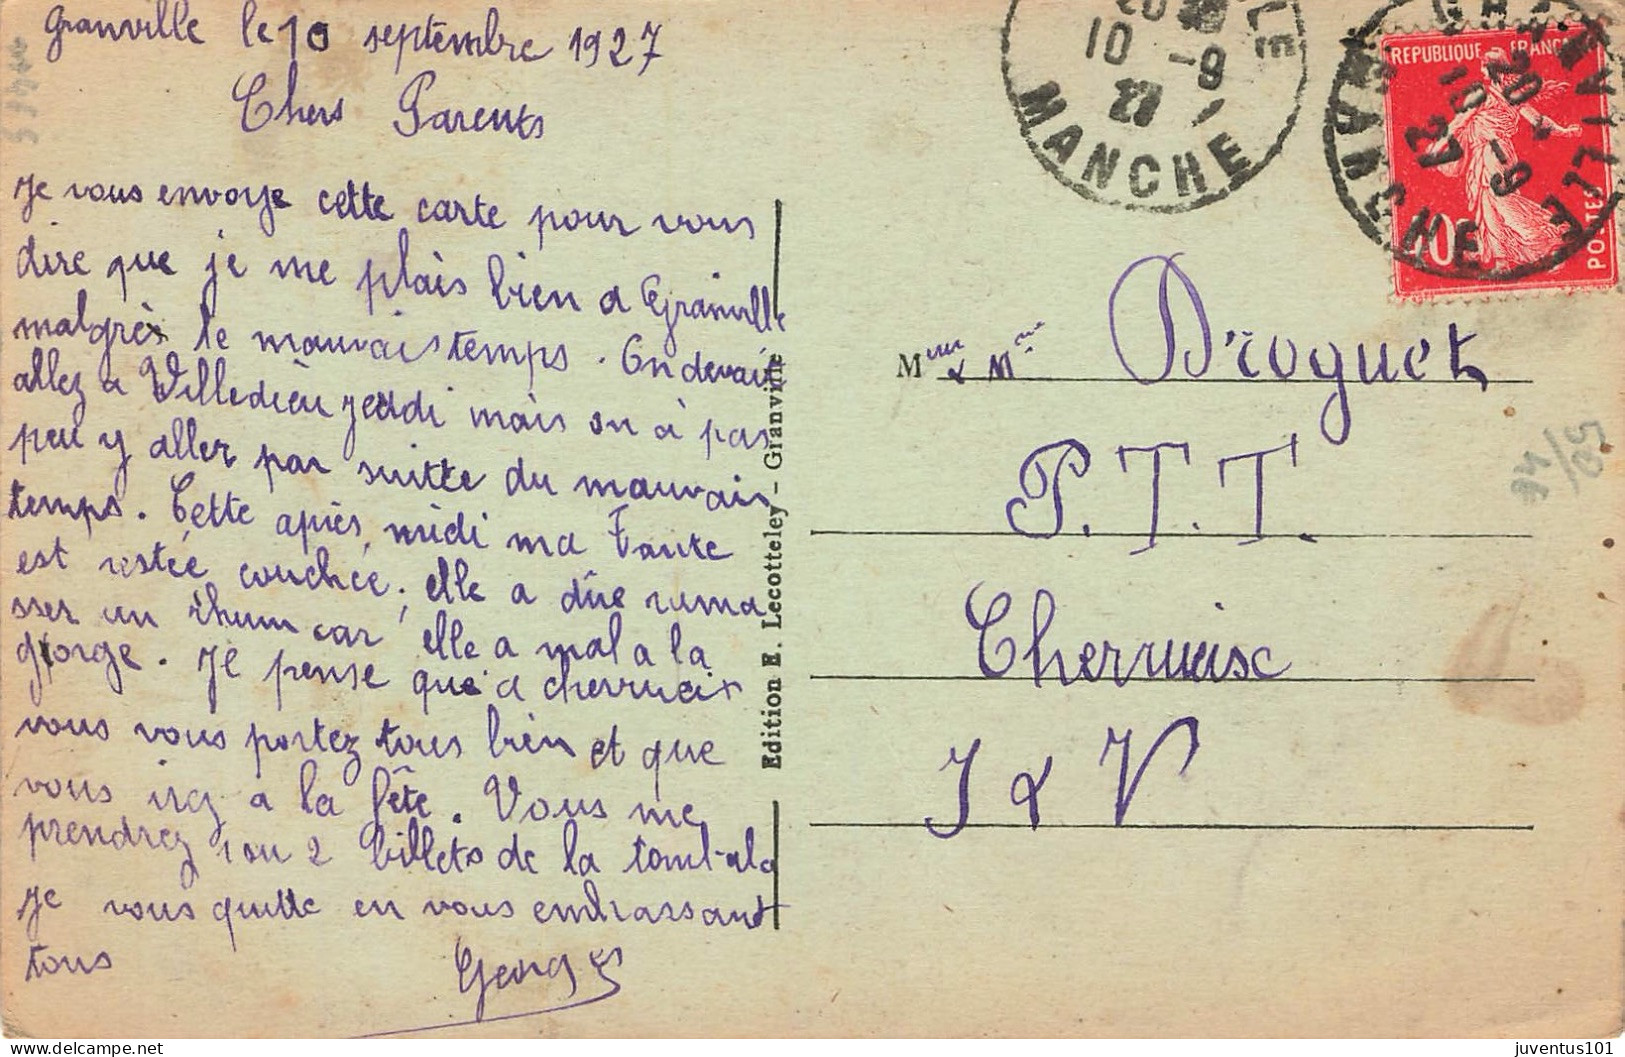 Granville le 10 septembre 1927
Chers Parents
Je vous envoye cette carte pour vous
dire que je me plais bien a Granville
malgrès le mauvais temps. On devait
allez a Villedièu jeudi mais on à pas
peu y aller par suitte du mauvais
temps. Cette après midi ma Tante
est restée couchée, elle a dûe rama
sser un rhum car elle a mal a la
gorge. Je pense que a cherrueix
vous vous portez tous bien et que
vous irez a la fête. Vous me
prendrez 1 ou 2 billets de la tombala
je vous quitte en vous embrassant
tous
Georges
Edition E. Lecotteley - Granville
10 -9
27
MANCHE
GRANVILLE
20
10 -9
27
MANCHE
REPUBLIQUE FRANÇAISE
POSTES
Mieur & Me Droguet
P.T.T.
Cherrueix
I & V
juventus101